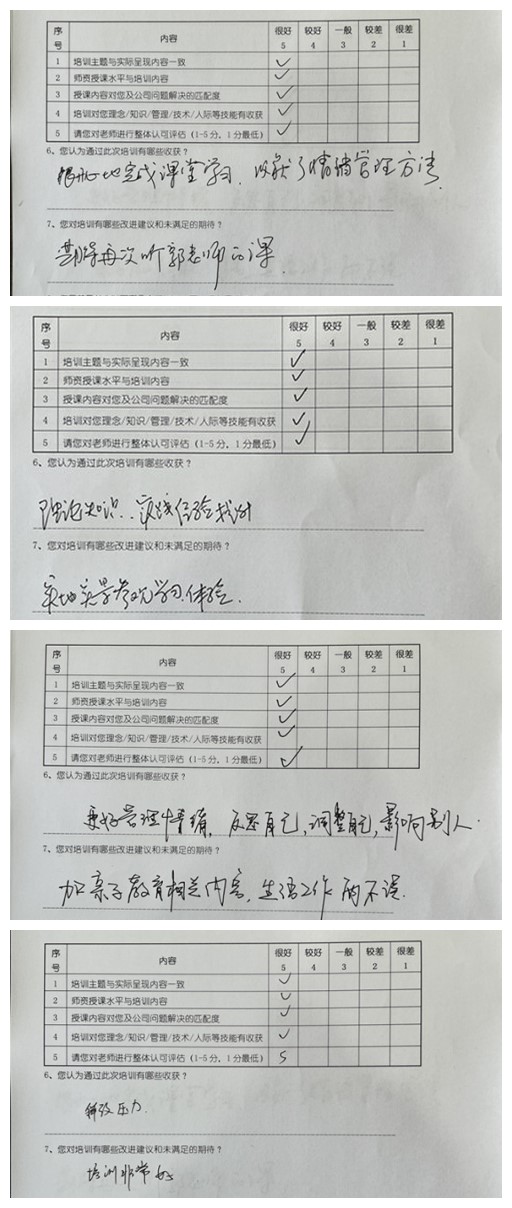 序号 内容 很好5 较好4 一般3 较差2 很差1
1 培训主题与实际呈现内容一致 ✓
2 师资授课水平与培训内容 ✓
3 授课内容对您及公司问题解决的匹配度 ✓
4 培训对您理念/知识/管理/技术/人际等技能有收获 ✓
5 请您对老师进行整体认可评估(1-5分,1分最低) ✓
6、您认为通过此次培训有哪些收获?
很开心地完成课堂学习,收获了情绪管理方法
7、您对培训有哪些改进建议和未满足的期待?
期待再次听郭老师的课
序号 内容 很好5 较好4 一般3 较差2 很差1
1 培训主题与实际呈现内容一致 ✓
2 师资授课水平与培训内容 ✓
3 授课内容对您及公司问题解决的匹配度 ✓
4 培训对您理念/知识/管理/技术/人际等技能有收获 ✓
5 请您对老师进行整体认可评估(1-5分,1分最低) ✓
6、您认为通过此次培训有哪些收获?
理论知识、实践经验
7、您对培训有哪些改进建议和未满足的期待?
实地实景参观学习、体验.
序号 内容 很好5 较好4 一般3 较差2 很差1
1 培训主题与实际呈现内容一致 ✓
2 师资授课水平与培训内容 ✓
3 授课内容对您及公司问题解决的匹配度 ✓
4 培训对您理念/知识/管理/技术/人际等技能有收获 ✓
5 请您对老师进行整体认可评估(1-5分,1分最低) ✓
6、您认为通过此次培训有哪些收获?
更好管理情绪,反思自己,调整自己,影响别人.
7、您对培训有哪些改进建议和未满足的期待?
加亲子教育相关内容,生活工作两不误.
序号 内容 很好5 较好4 一般3 较差2 很差1
1 培训主题与实际呈现内容一致 ✓
2 师资授课水平与培训内容 ✓
3 授课内容对您及公司问题解决的匹配度 ✓
4 培训对您理念/知识/管理/技术/人际等技能有收获 ✓
5 请您对老师进行整体认可评估(1-5分,1分最低) 5
6、您认为通过此次培训有哪些收获?
释放压力.
7、您对培训有哪些改进建议和未满足的期待?
培训非常好